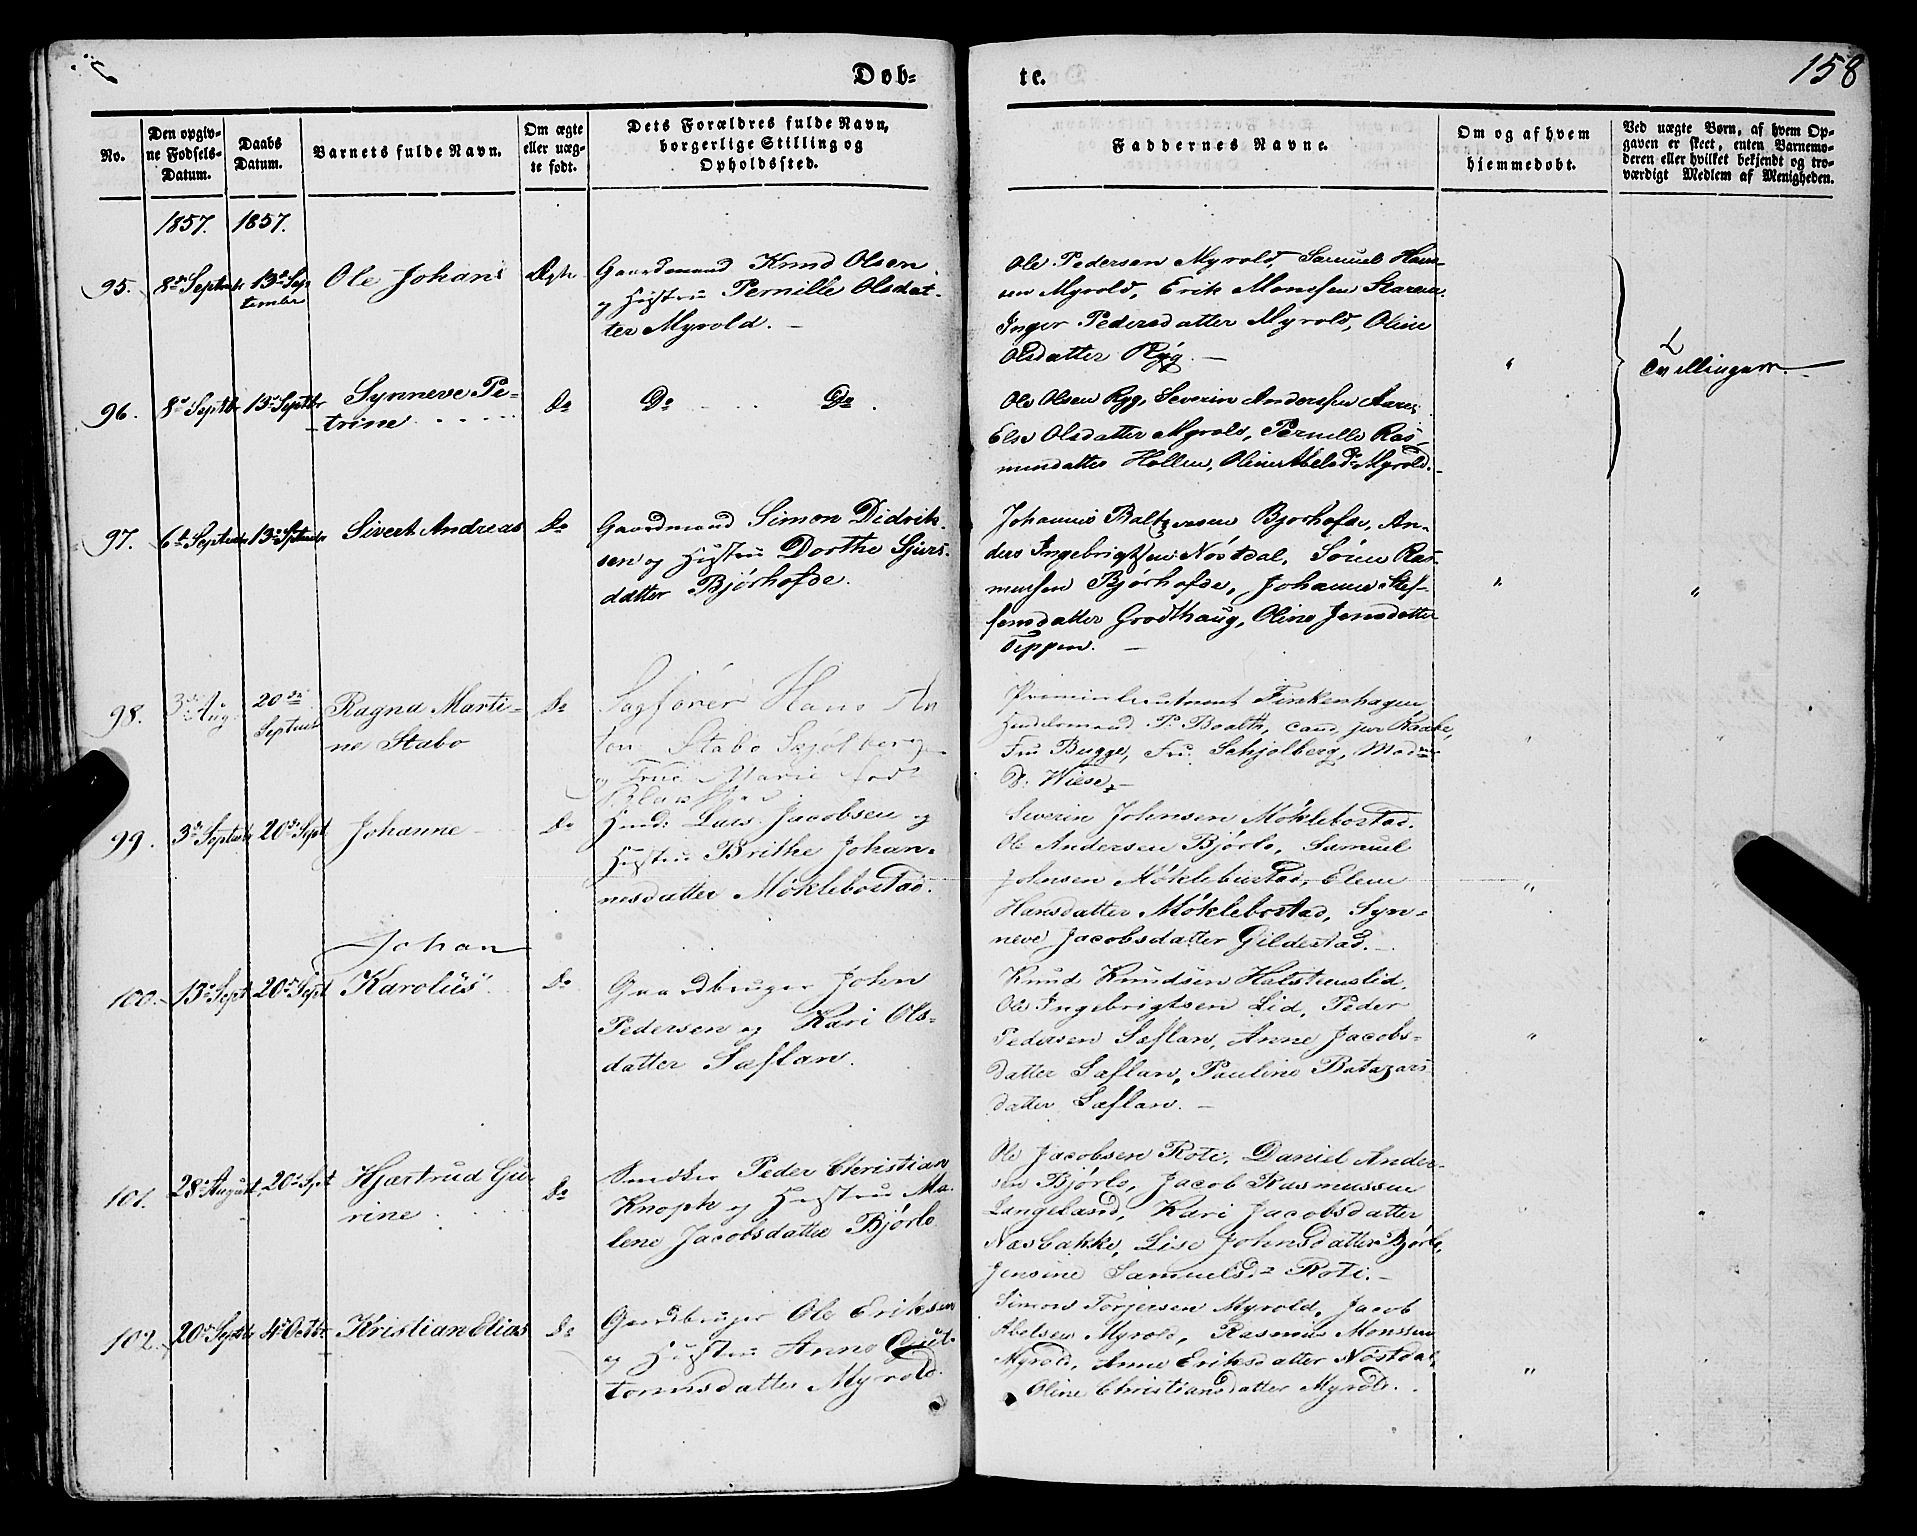 Døb-
te.
158
No.
Den opgiv-
ne Fødsels-
Datum.
Daabs
Datum.
Barnets fulde Navn.
Om ægte
eller uæg-
te født.
Dets Forældres fulde Navn,
borgerlige Stilling og
Opholdssted.
Faddernes Navne.
Om og af hvem
hjemmedøbt.
Ved uægte Børn, af hvem Op-
gaven er skeet, enten Barnemo-
deren eller hvilket bekjendt og tro-
værdigt Medlem af Menigheden.
1857. 1857.
95.
8de Septembr
13de Sep-
tember
Ole Johans
Ægte
Gaardmand Knud Olsen
og Hustru Pernille Olsdat-
ter Myrold. –
Ole Pedersen Myrold, Samuel Han-
sen Myrold, Erik Monssen
Inger Pedersdatter Myrold, Oline
Olsdatter Ryg. –
"
Tvillinger. –
96.
8de Septbr
13de Septbr
Synneve Pe-
trine
Do
Do Do.
Ole Olsen Ryg, Severin Anderssen Aares
Else Olsdatter Myrold, Pernille Ras-
musdatter Hollen, Oline Abelsdr Myrold. –
97.
6te Septembr
13de Septembr
Sivert Andreas
Do
Gaardmand Simon Didrik-
sen og Hustru Dorthe Sjurs-
datter Bjørhofde.
Johannes Baltzersen Bjorhofde, An-
ders Ingebrigtsen Nøstdal, Søren Ras-
mussen Bjørhofde, Johanne Stef-
fensdatter Grodthaug, Oline Jensdatter
Teppen. –
"
"
98.
3die Aug.
20de
September
Ragna Marti-
ne Stabo
Do
Sagfører Hans An
ton Stabo
og Frue Marie født
Premierlieutenant Finkenhagen
Handelsmand P. Booth, cand. jur. Knabe,
Fru Bugge, Fru Schjolberg, Madme
D. Wiese. –
"
"
99.
3die Septembr
20de Sept
Johanne
Do
Huud: Lars Jacobsen og
Hustru Brithe Johan-
nesdatter Møklebostad.
Severin Johnsen Møklebostad.
Ole Andersen Bjørlo, Samuel
Johnsen Møklebustad, Elene
Hansdatter Møklebostad, Syn-
neve Jacobsdatter Gildestad. –
"
"
100.
13de Sept
20de Sept
Johan
Karolius
Do
Gaardbruger John
Pedersen og Kari Ols-
datter Sæflan.
Knud Knudsen Holstenslid.
Ole Ingebrigtsen Lid, Peder
Pedersen Sæflan, Anne Jacobs-
datter Sæflan, Pauline Batazars
datter Sæflan. –
"
"
101.
28de August.
20de Sept
Hjertrud Gu-
rine
Do
Snedker Peder Christian
Knoph og Hustru Ma-
lene Jacobsdatter Bjørlo
Ole Jacobsen Roti, Daniel Ander-
sen Bjørlo, Jacob Rasmussen
Langeland, Kari Jacobsdatter
Nosbakke, Lise Johnsdatter Bjørlo,
Jensine Samuelsdr Roti. –
"
102.
20de Septbr
4de Octbr
Kristian Elias
Do
Gaardbruger Ole Eriksen
og Hustru Anne Gut-
tormsdatter Myrold.
Simon Torjersen Myrold, Jacob
Abelsen Myrold, Rasmus Monssen
Myrold, Anne Eriksdatter Nøstdal,
Oline Christiansdatter Myrold.
"
"